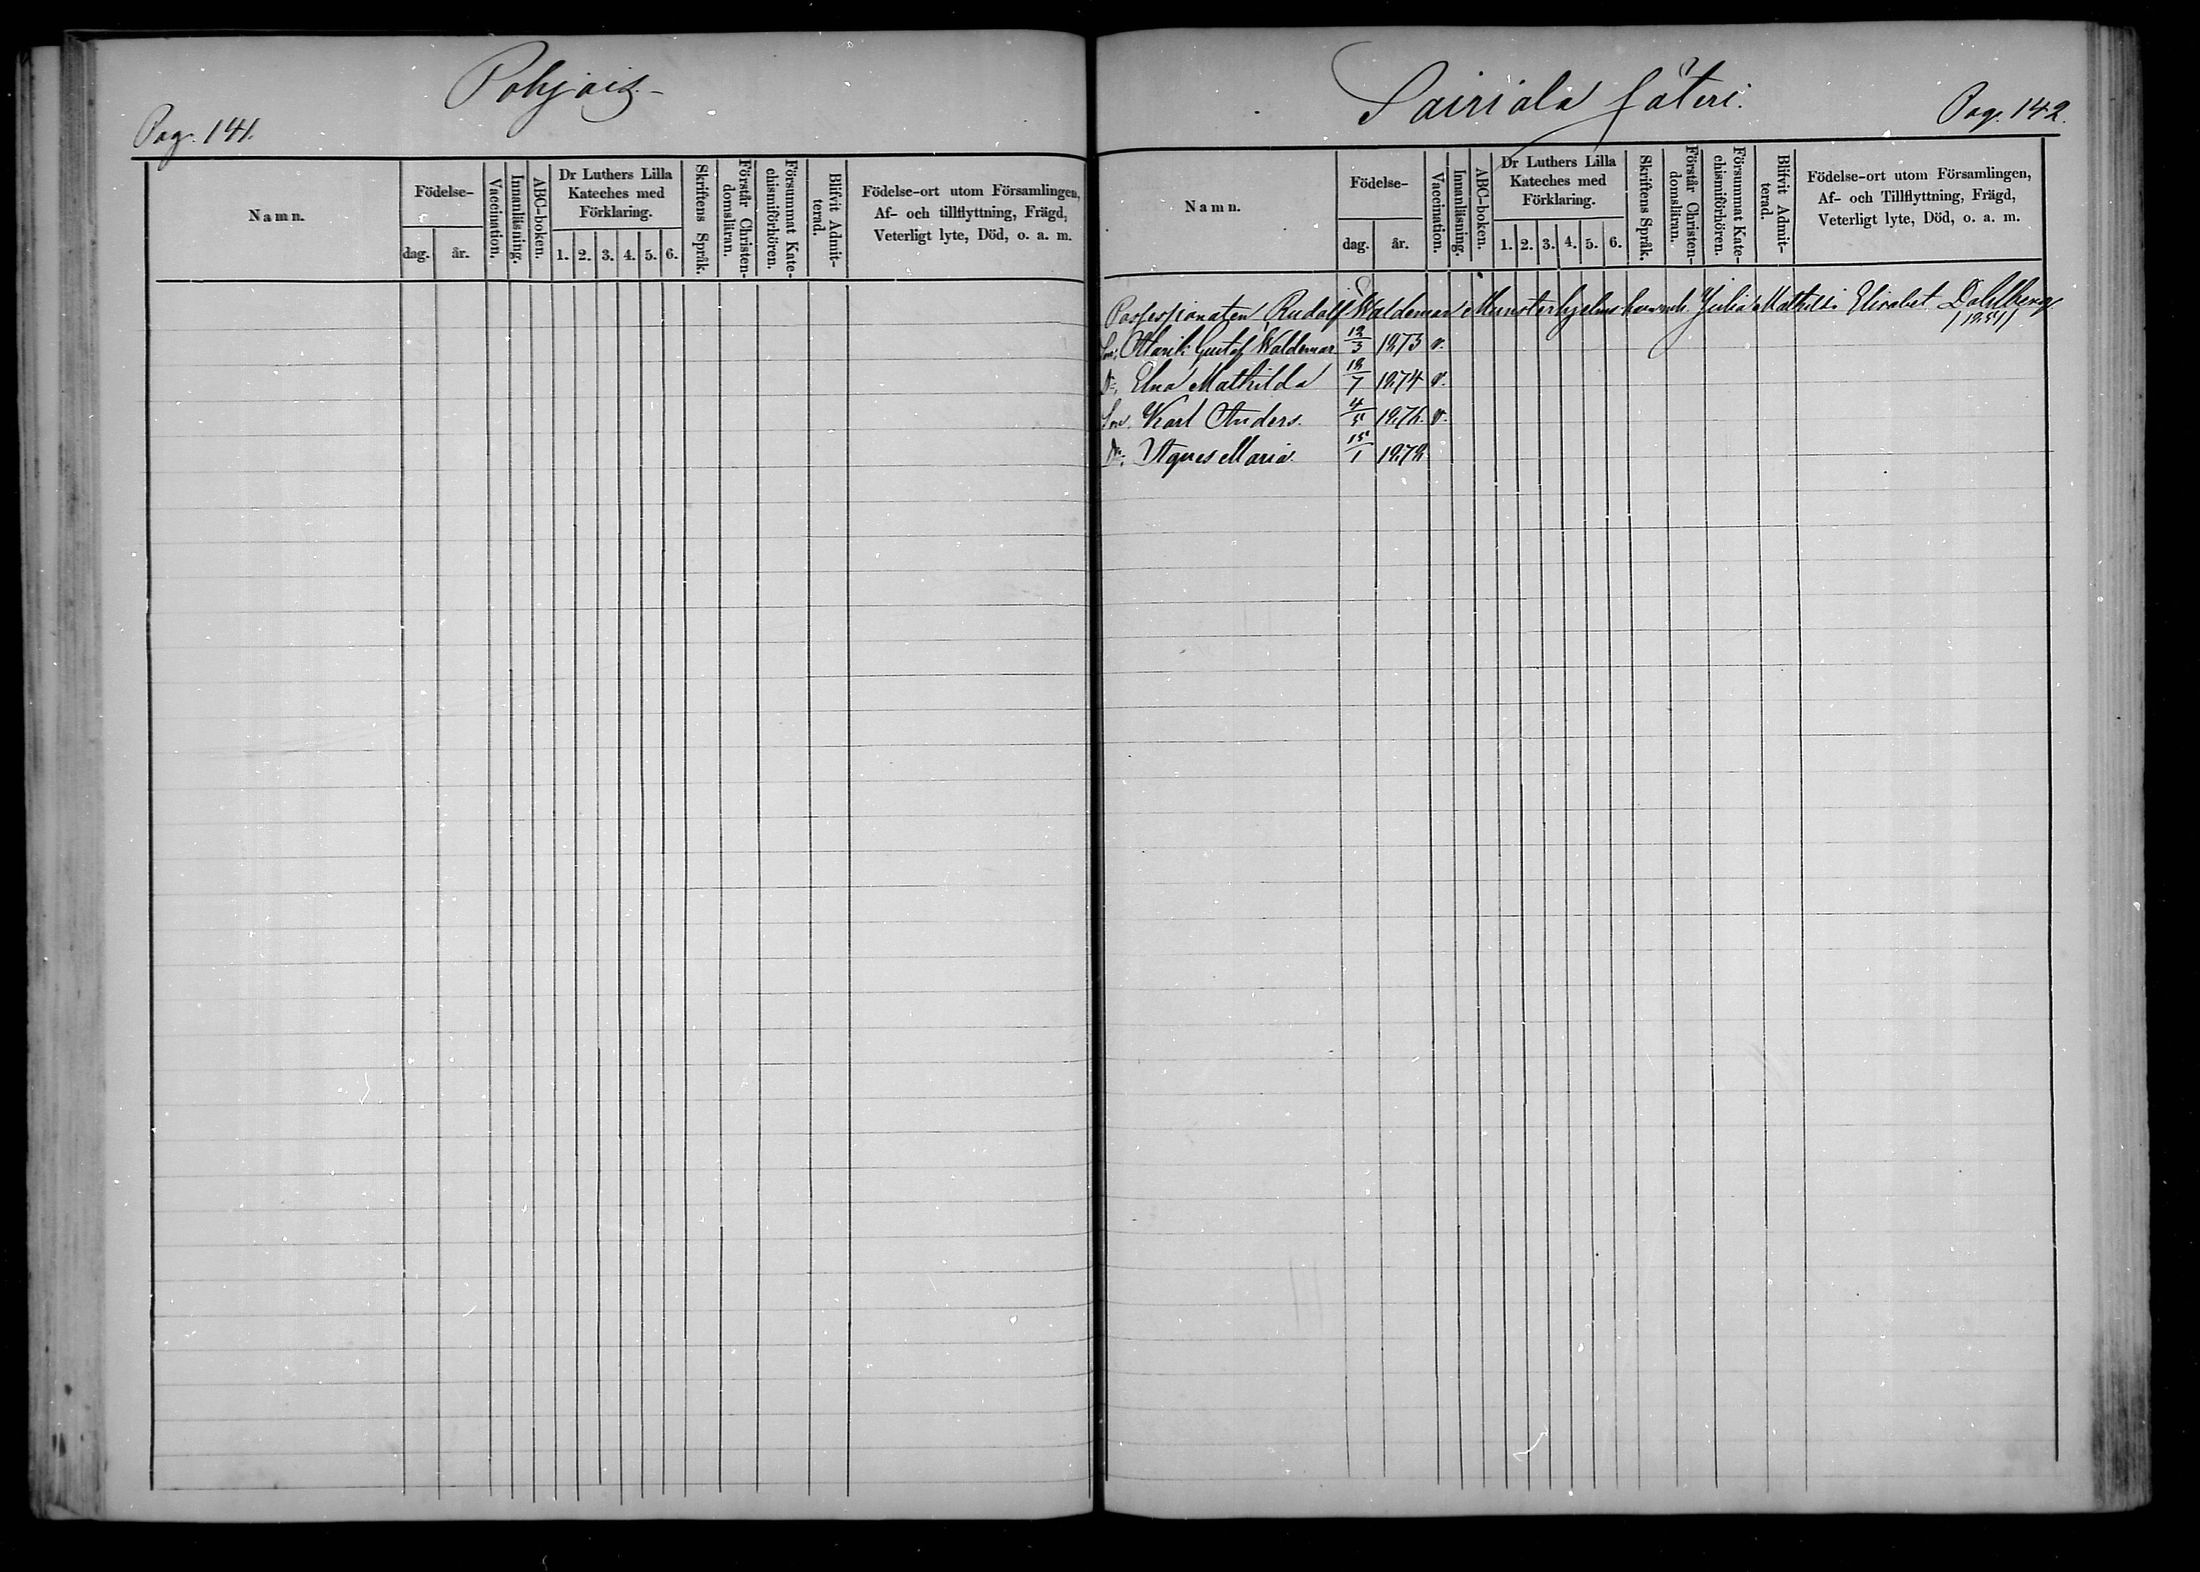 Pohjois
Pag. 141.
Namn.
Födelse-
dag.
år.
Vaccination.
Innanläsning.
ABC-boken.
Dr Luthers Lilla
Kateches med
Förklaring.
1. 2. 3. 4. 5. 6.
Skriftens Språk.
Förstår Christen-
domsläran.
Försummat Kate-
chismiförhören.
Blifvit Admit-
terad.
Födelse-ort utom Församlingen,
Af- och tillflyttning, Frägd,
Veterligt lyte, Död, o. a. m.
Sairiala säteri.
Pag. 142.
Namn.
Födelse-
dag.
år.
Vaccination.
Innanläsning.
ABC-boken.
Dr Luthers Lilla
Kateches med
Förklaring.
1. 2. 3. 4. 5. 6.
Skriftens Språk.
Förstår Christen-
domsläran.
Försummat Kate-
chismiförhören.
Blifvit Admit-
terad.
Födelse-ort utom Församlingen,
Af- och Tillflyttning, Frägd,
Veterligt lyte, Död, o. a. m.
Possessionaten Rudolf Waldemar Munsterhjelms Julia Mathilda Elisabet Dahlberg
Son: Gustaf Waldemar 12/3 1873 v.
Dr. Elna Mathilda 18/7 1874 v.
Son Karl Anders. 4/5 1876. v.
Dr. Agnes Maria. 15/1 1878